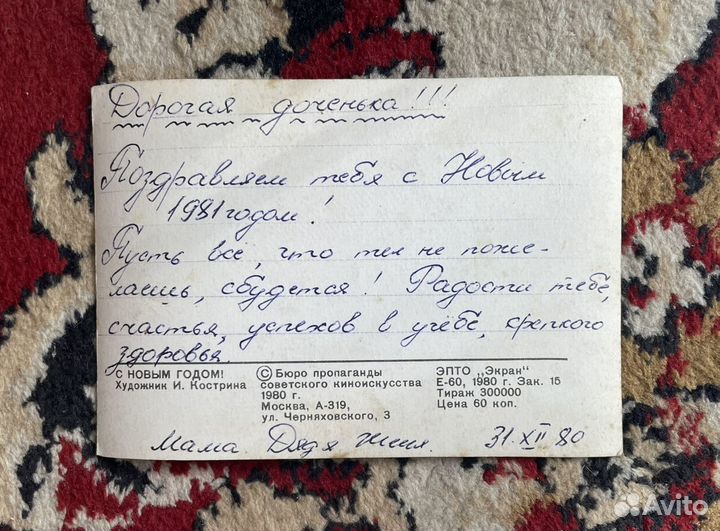 Дорогая доченька!!!
Поздравляем тебя с Новым
1981 годом!
Пусть всё, что ты не поже-
лаешь, сбудется! Радости тебе,
счастья, успехов в учёбе, крепкого
здоровья.
С НОВЫМ ГОДОМ!
Художник И. Кострина
© Бюро пропаганды
советского киноискусства
1980 г.
Москва, А-319,
ул. Черняховского, 3
ЭПТО „Экран"
Е-60, 1980 г. Зак. 15
Тираж 300000
Цена 60 коп.
Мама. Дядя Женя. 31.XII 80
Avito